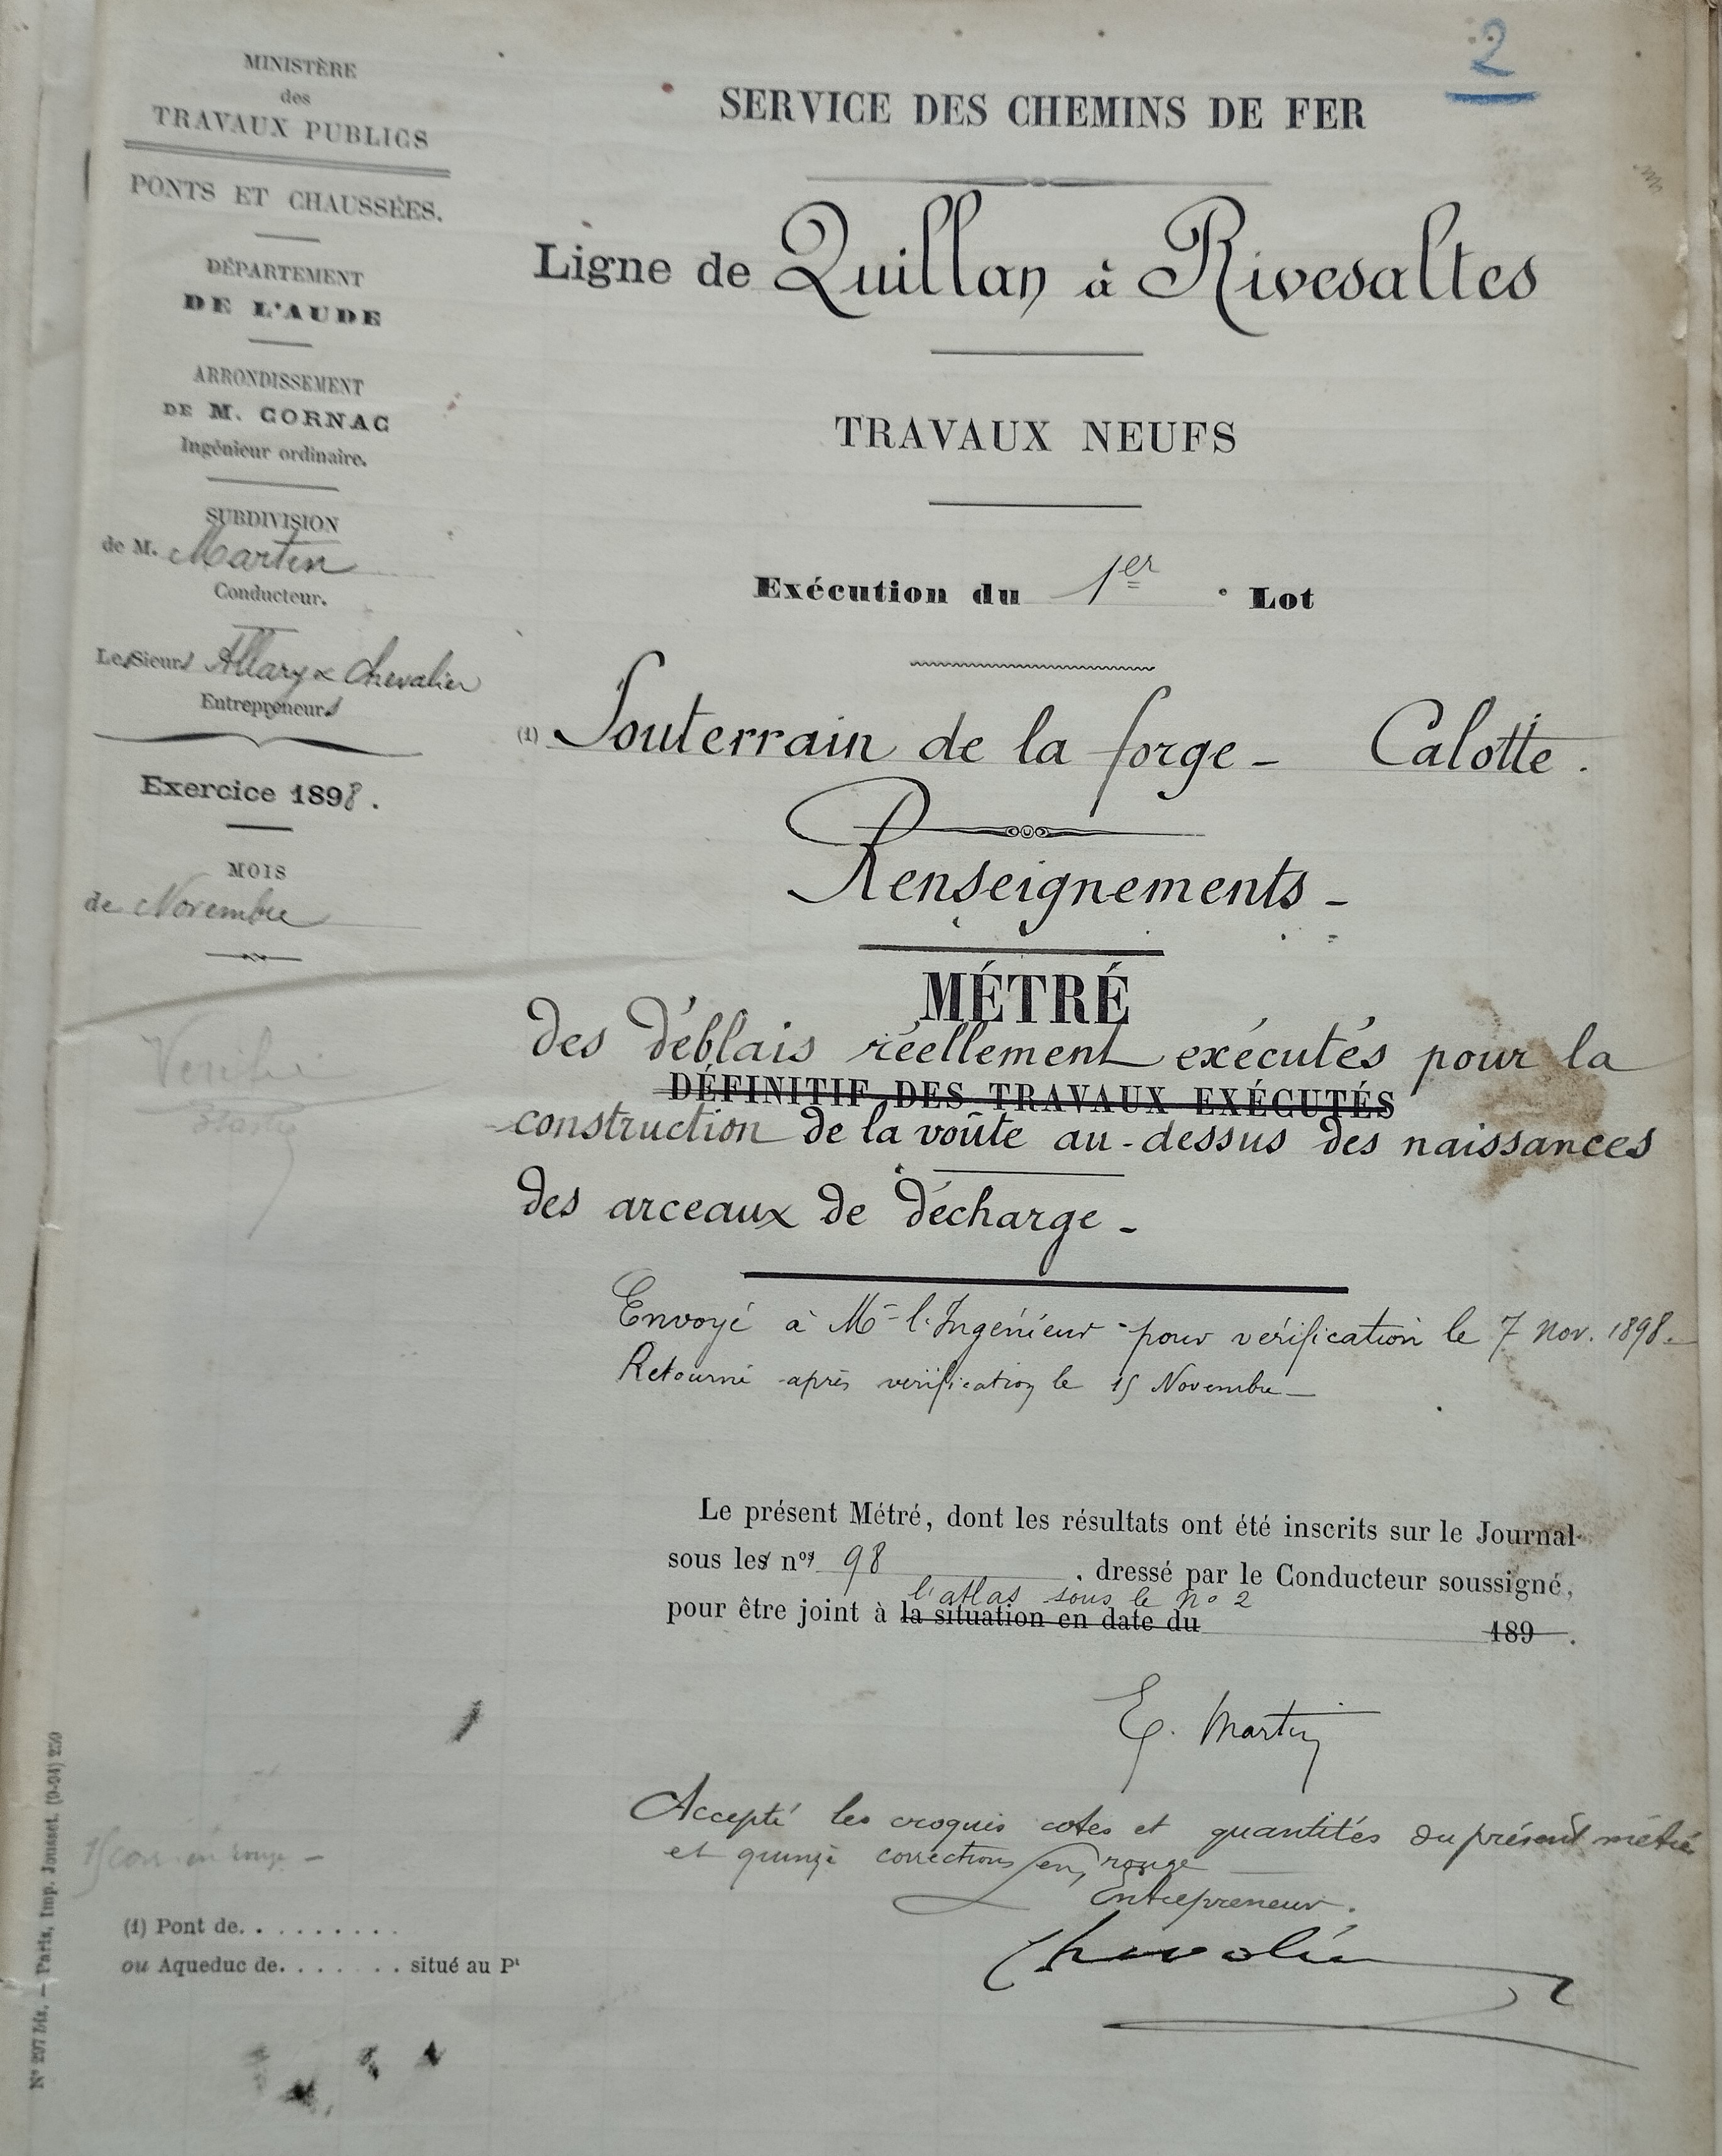 2
MINISTÈRE
des
TRAVAUX PUBLICS
PONTS ET CHAUSSÉES.
DÉPARTEMENT
DE L'AUDE
ARRONDISSEMENT
DE M. CORNAC
Ingénieur ordinaire.
SUBDIVISION
de M. Martin
Conducteur.
Les Sieurs Allary & Chevalier
Entrepreneurs
Exercice 1898.
MOIS
de Novembre
Verifié
Martin
SERVICE DES CHEMINS DE FER
Ligne de Quillan à Rivesaltes
TRAVAUX NEUFS
Exécution du 1er Lot
(1) Souterrain de la forge - Calotte.
Renseignements -
MÉTRÉ
des déblais réellement exécutés pour la
DÉFINITIF DES TRAVAUX EXÉCUTÉS
construction de la voûte au-dessus des naissances
des arceaux de décharge -
Envoyé à Mr l'Ingénieur pour vérification le 7 nov. 1898.
Retourné après vérification le 15 Novembre
Le présent Métré, dont les résultats ont été inscrits sur le Journal
sous les nos 98 , dressé par le Conducteur soussigné,
l'atlas sous le n° 2
pour être joint à la situation en date du 189 .
E. Martin
Accepté les croquis cotes et quantités du présent métré
et quinze corrections en rouge
Entrepreneur.
Chevalier
15 corr. en rouge -
(1) Pont de. . . . . . . . .
ou Aqueduc de. . . . . . . . situé au Pt
N° 297 bis. — Paris, Imp. Jousset. (9-94) 250